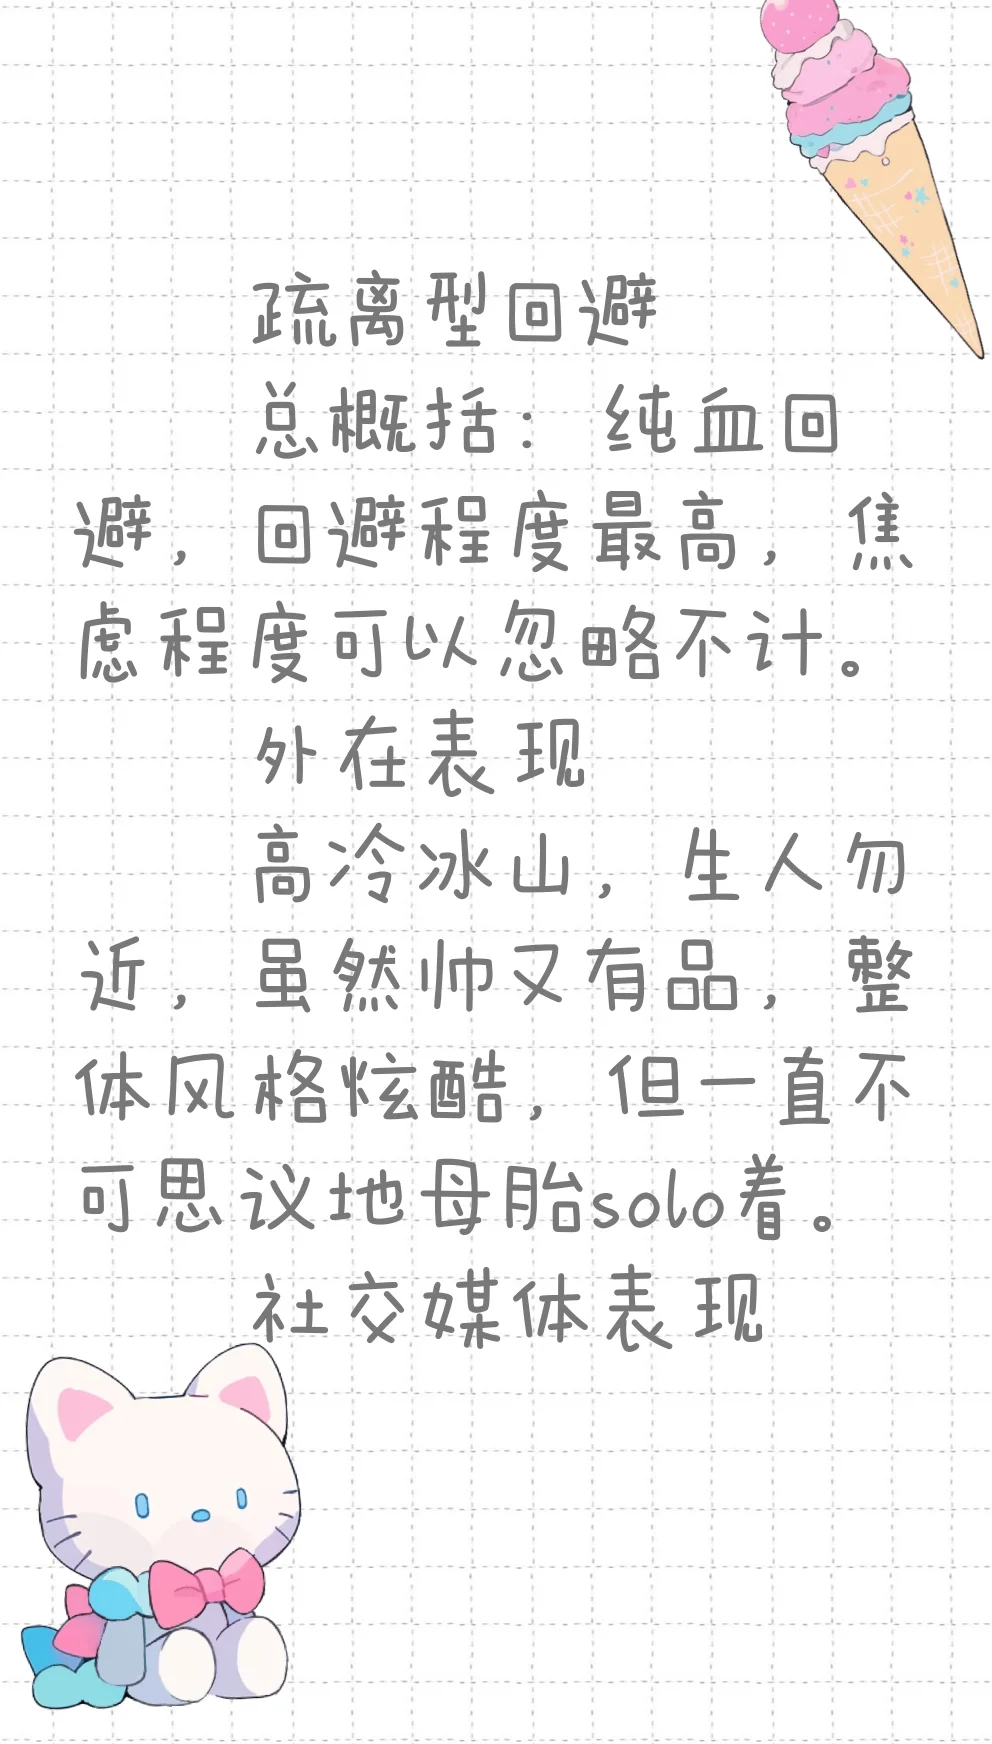 疏离型回避
总概括：纯血回
避，回避程度最高，焦
虑程度可以忽略不计。
外在表现
高冷冰山，生人勿
近，虽然帅又有品，整
体风格炫酷，但一直不
可思议地母胎solo着。
社交媒体表现